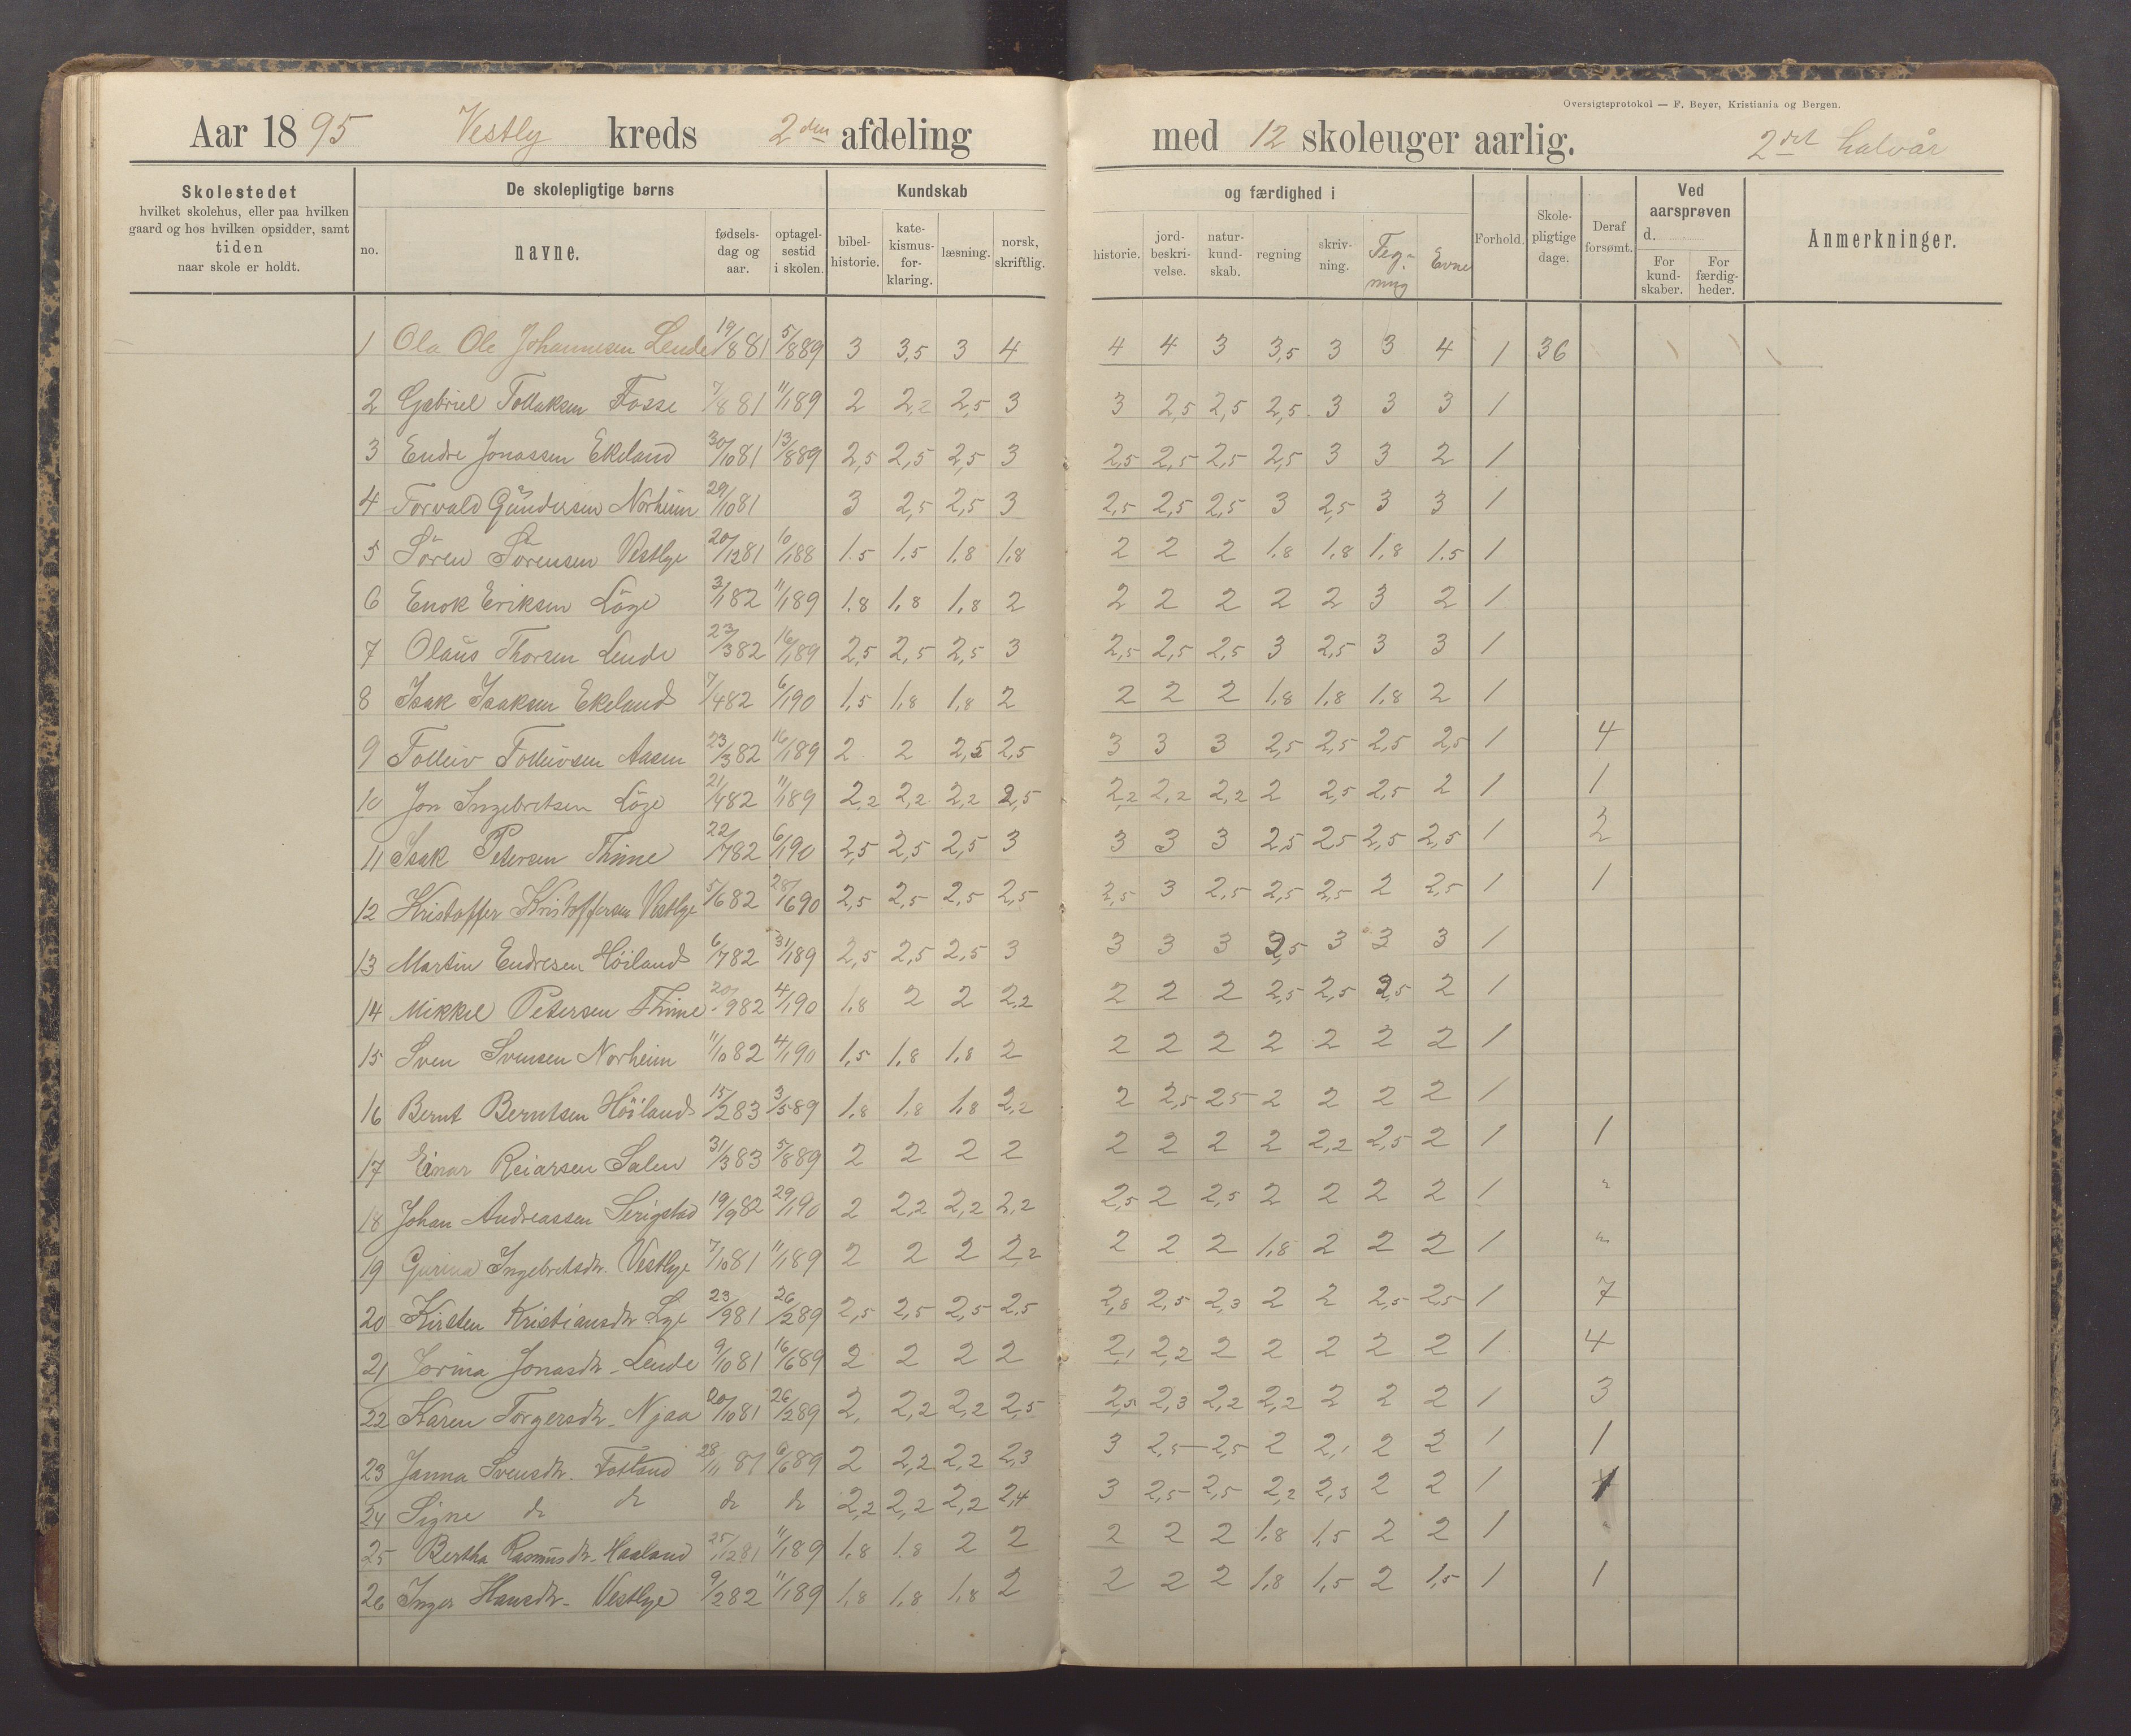 Oversigtsprotokol — F. Beyer, Kristiania og Bergen.
Aar 1895 Vestly kreds 2den afdeling med 12 skoleuger aarlig. 2det halvår
Skolestedet hvilket skolehus, eller paa hvilken gaard og hos hvilken opsidder, samt tiden naar skole er holdt.
De skolepligtige børns
no. navne. fødselsdag og aar. optagelsestid i skolen.
Kundskab og færdighed i
bibelhistorie. katekismusforklaring. læsning. norsk, skriftlig. historie. jordbeskrivelse. naturkundskab. regning skrivning. Tegning Evne
Forhold. Skolepligtige dage. Deraf forsømt.
Ved aarsprøven d. For kundskaber. For færdigheder.
Anmerkninger.
1 Ola Ole Johannesen Lende 19/8 81 5/8 89 3 3,5 3 4 4 4 3 3,5 3 3 4 1 36
2 Gabriel Tollaksen Fosse 7/8 81 11/1 89 2 2,2 2,5 3 3 2,5 2,5 2,5 3 3 3 1
3 Endre Jonassen Ekeland 30/10 81 13/8 89 2,5 2,5 2,5 3 2,5 2,5 2,5 2,5 3 3 2 1
4 Torvald Gundersen Norheim 29/10 81 3 2,5 2,5 3 2,5 2,5 2,5 3 2,5 3 3 1
5 Sören Sörensen Vestlye 20/12 81 10/1 88 1.5 1,5 1,8 1,8 2 2 2 1.8 1,8 1,8 1.5 1
6 Enok Eriksen Löge 3/1 82 11/1 89 1.8 1,8 1,8 2 2 2 2 2 2 3 2 1
7 Olaus Thorsen Lende 23/3 82 16/1 89 2,5 2,5 2,5 3 2,5 2,5 2,5 3 2,5 3 3 1
8 Isak Isaksen Ekeland 7/4 82 6/1 90 1,5 1,8 1,8 2 2 2 2 1,8 1,8 1,8 2 1
9 Tolleiv Tolleivsen Aasen 23/3 82 16/1 89 2 2 2,5 2,5 3 3 3 2,5 2,5 2,5 2,5 1 4
10 Jon Ingebretsen Löge 21/4 82 11/1 89 2,2 2,2 2,2 2,5 2,2 2,2 2,2 2 2,5 2,5 2 1 1
11 Isak Petersen Thime 22/7 82 6/1 90 2,5 2,5 2,5 3 3 3 3 2,5 2,5 2,5 2,5 1
12 Kristoffer Kristoffersen Vestlye 5/6 82 28/6 90 2,5 2,5 2,5 2,5 2,5 3 2,5 2,5 2,5 2 2,5 1 1
13 Martin Endresen Höiland 6/7 82 31/1 89 2,5 2,5 2,5 3 3 3 3 2,5 3 3 3 1
14 Mikkel Petersen Thime 20/9 82 4/1 90 1.8 2 2 2,2 2 2 2 2,5 2,5 2,5 2 1
15 Sven Svensen Norheim 11/10 82 4/1 90 1,5 1,8 1,8 2 2 2 2 2 2 2 2 1
16 Bernt Berntsen Höiland 15/2 83 3/5 89 1,8 1,8 1,8 2,2 2 2,5 2,5 2 2 2 2 1
17 Einar Reiarsen Salen 31/3 83 5/8 89 2 2 2 2 2 2 2 2 2,2 2,5 2 1 1
18 Johan Andreassen Serigstad 19/9 82 29/1 90 2 2,2 2,2 2,2 2,5 2 2,5 2 2 2 2 1 "
19 Gurina Ingebretsdtr. Vestlye 7/10 81 11/1 89 2 2 2 2,2 2 2 2 1,8 2 2 2 1 "
20 Kirsten Kristiansdtr Lye 23/9 81 26/2 89 2,5 2,5 2,5 2,5 2,8 2,5 2,3 2 2 2,5 2,5 1 7
21 Jorina Jonasdtr. Lende 9/10 81 16/6 89 2 2 2 2 2,1 2,2 2 2 2 2 2 1 4
22 Karen Torgersdtr. Njaa 20/10 81 26/2 89 2, 2,2 2,2 2,5 2,5 2,3 2,2 2,2 2 2 2 1 3
23 Janna Svensdtr. Fotland 28/11 81 6/6 89 2 2,2 2,2 2,3 3 2,5 2,5 2 2,1 2 2 1 1
24 Signe do do do do 2,2 2,2 2,2 2,4 3 2,5 2,5 2,2 2,3 2 2 1 1
25 Bertha Rasmusdtr. Haaland 25/12 81 11/1 89 1,8 1.8 2 2 2 2 2 1,8 1,5 2 2 1
26 Inger Hansdtr. Vestlye 9/2 82 11/1 89 1,8 1,8 1,8 2 2 2 2 1,8 1,5 2 1,5 1 1